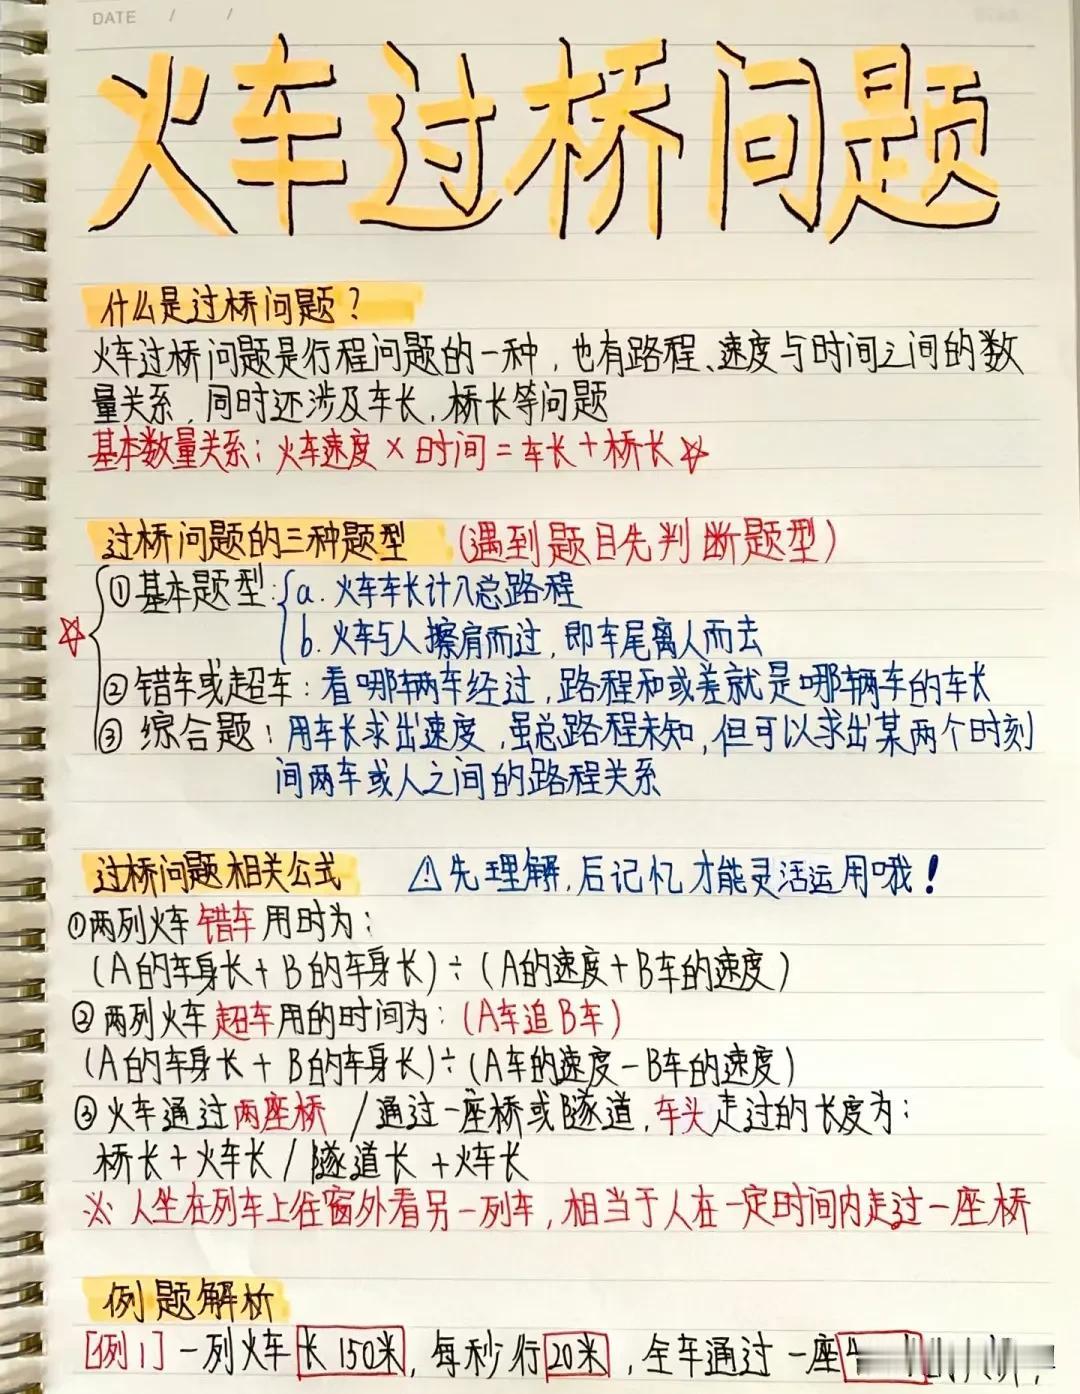 DATE / /
火车过桥问题
什么是过桥问题？
火车过桥问题是行程问题的一种，也有路程、速度与时间之间的数
量关系，同时还涉及车长，桥长等问题
基本数量关系：火车速度×时间=车长+桥长☆
过桥问题的三种题型（遇到题目先判断题型）
①基本题型：a.火车车长计入总路程
☆ b.火车与人擦肩而过，即车尾离人而去
②错车或超车：看哪辆车经过，路程和或差就是哪辆车的车长
③综合题：用车长求出速度，虽总路程未知，但可以求出某两个时刻
间两车或人之间的路程关系
过桥问题相关公式 ⚠先理解，后记忆才能灵活运用哦！
①两列火车错车用时为：
（A的车身长+B的车身长）÷（A的速度+B车的速度）
②两列火车超车用的时间为：（A车追B车）
（A的车身长+B的车身长）÷（A车的速度-B车的速度）
③火车通过两座桥/通过一座桥或隧道，车头走过的长度为：
桥长+火车长/隧道长+火车长
※人坐在列车上往窗外看另一列车，相当于人在一定时间内走过一座桥
例题解析
[例1]一列火车长150米，每秒行20米，全车通过一座